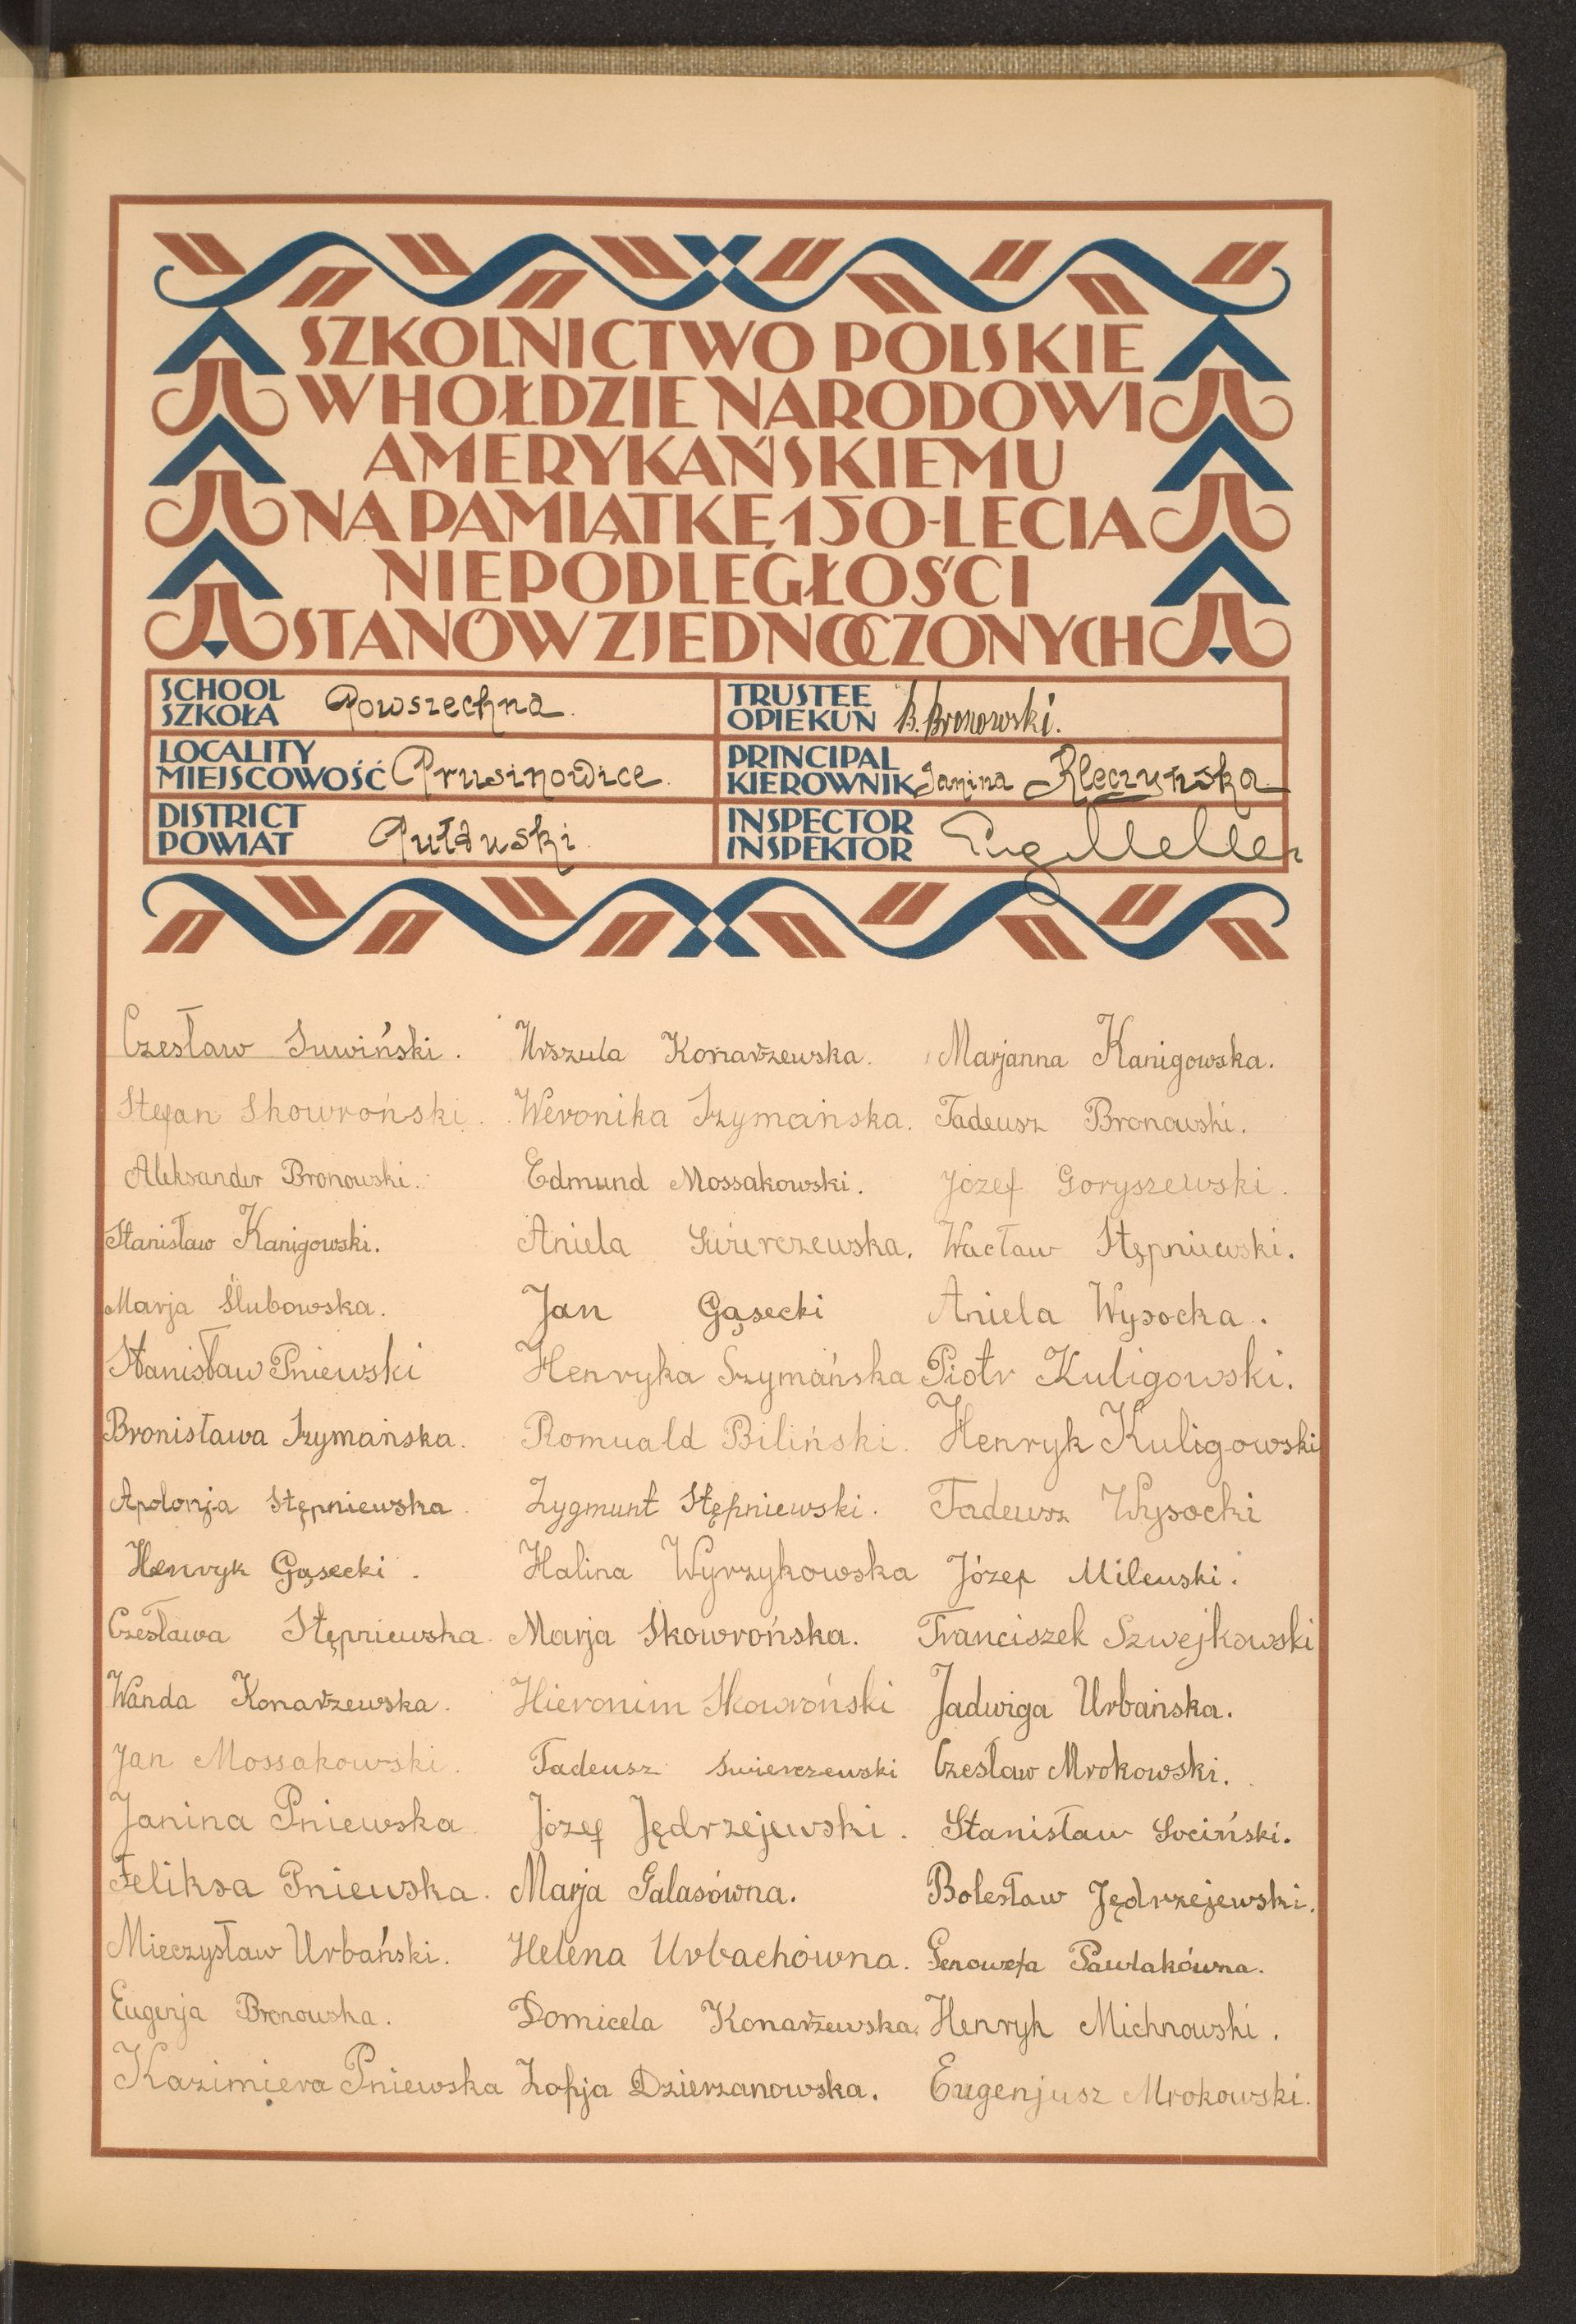 SZKOLNICTWO POLSKIE
W HOŁDZIE NARODOWI
AMERYKAŃSKIEMU
NA PAMIĄTKĘ 150-LECIA
NIEPODLEGŁOŚCI
STANÓW ZJEDNOCZONYCH
SCHOOL
SZKOŁA Powszechna.
TRUSTEE
OPIEKUN B. Bronowski.
LOCALITY
MIEJSCOWOŚĆ Prusinowice.
PRINCIPAL
KIEROWNIK Janina Kleczyńska
DISTRICT
POWIAT Pułtuski.
INSPECTOR
INSPEKTOR
Czesław Suwiński. Urszula Konarzewska. Marjanna Kanigowska.
Stefan Skowroński. Weronika Szymańska. Tadeusz Bronowski.
Aleksander Bronowski. Edmund Mossakowski. Józef Goryszewski.
Stanisław Kanigowski. Aniela Świerczewska. Wacław Stępniewski.
Marja Ślubowska. Jan Gąsecki Aniela Wysocka.
Stanisław Pniewski Henryka Szymańska Piotr Kuligowski.
Bronisława Szymańska. Romuald Biliński. Henryk Kuligowski
Apolonja Stępniewska. Zygmunt Stępniewski. Tadeusz Wysocki
Henryk Gąsecki. Halina Wyrzykowska Józef Milewski.
Czesława Stępniewska. Marja Skowrońska. Franciszek Szwejkowski
Wanda Konarzewska. Hieronim Skowroński Jadwiga Urbańska.
Jan Mossakowski. Tadeusz Świerczewski Czesław Mrokowski.
Janina Pniewska Józef Jędrzejewski. Stanisław Sociński.
Feliksa Pniewska. Marja Galasówna. Bolesław Jędrzejewski.
Mieczysław Urbański. Helena Urbachówna. Genowefa Pawlakówna.
Eugenja Bronowska. Domicela Konarzewska. Henryk Michnowski.
Kazimiera Pniewska Zofja Dzierzanowska. Eugenjusz Mrokowski.